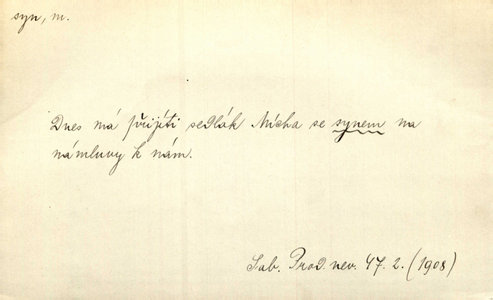 syn, m.
Dnes má přijíti sedlák Mícha se synem na
námluvy k nám.
Sab. Prod. nev. 47. 2. (1908)